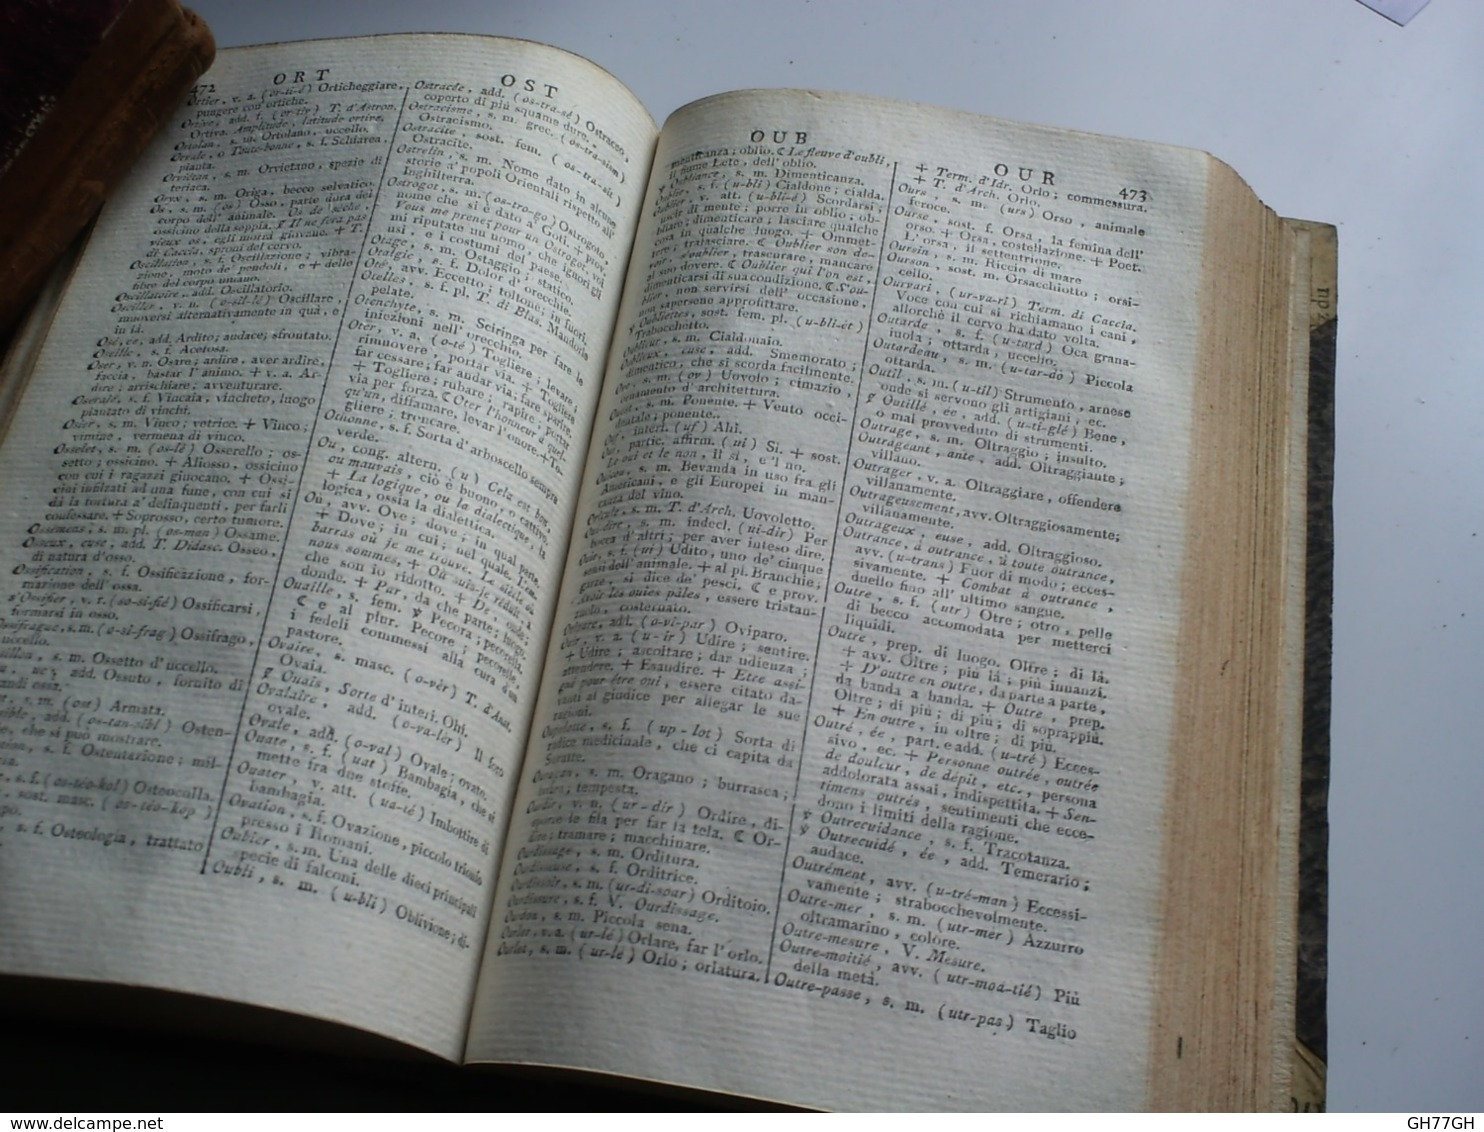 472 ORT OST
Ortier, v. a. (or-ti-é) Orticheggiare,
pungere con ortiche.
Ortive, add. f. (or-tiv) T. d'Astron.
Ortiva. Amplitude, latitude ortive.
Ortolan, s. m. Ortolano, uccello.
Orvale, o Toute-bonne, s. f. Schiarea,
pianta.
Orviétan, s. m. Orvietano, spezie di
teriaca.
Oryx, s. m. Origa, becco selvatico.
Os, s. m. (os) Osso, parte dura del
corpo dell' animale.
ossicino della seppia.
di Caccia, speroni del cervo.
Oscillation, s. f. Oscillazione; vibra-
zione, moto de' pendoli, e + delle
fibre del corpo umano.
Oscillatoire, add. Oscillatorio.
Osciller, v. n. (o-sil-lé) Oscillare,
muoversi alternativamente in quà, e
in là.
Osé, ée, add. Ardito; audace; sfrontato.
Oseille, s. f. Acetosa.
Oser, v. n. Osare; ardire, aver ardire,
faccia, bastar l'animo. + v. a. Ar-
dire; arrischiare; avventurare.
Oseraie, s. f. Vincaia, vincheto, luogo
piantato di vinchi.
Osier, s. m. Vinco; vetrice. + Vinco;
vimine, vermena di vinco.
Osselet, s. m. (os-lè) Osserello; os-
setto; ossicino. + Aliosso, ossicino
con cui i ragazzi giuocano. + Ossi-
cini infilzati ad una fune, con cui si
dà la tortura a' delinquenti, per farli
confessare. + Soprosso, certo tumore.
Ossemens, s. m. pl. (os-man) Ossame.
Osseux, euse, add. T. Didasc. Osseo,
di natura d'osso.
Ossification, s. f. Ossificazione, for-
mazione dell' ossa.
s'Ossifier, v. r. (so-si-fié) Ossificarsi,
formarsi in osso.
Ossifrague, s. m. (o-si-frag) Ossifrago,
uccello.
s. m. Ossetto d'uccello.
add. Ossuto, fornito di
s. m. (ost) Armata.
add. (os-tan-sibl) Osten-
che si può mostrare.
s. f. Ostentazione; mil-
s. f. (os-téo-kol) Osteocolla.
sost. masc. (os-téo-kop)
s. f. Osteologia, trattato
Ostracée, add. (os-tra-sé) Ostraceo,
coperto di più squame dure.
Ostracisme, s. m. grec. (os-tra-sism)
Ostracismo.
Ostracite, sost. fem. (os-tra-sit)
Ostracite.
Ostrelin, s. m. Nome dato in alcune
storie a' popoli Orientali rispetto all'
Inghilterra.
Ostrogot, s. m. (os-tro-go) Ostrogoto,
nome che si è dato a' Goti. + prov.
Vous me prenez pour un Ostrogot, voi
mi riputate un uomo, che ignori gli
usi, e i costumi del paese.
Otage, s. m. Ostaggio; statico.
Otalgie, s. f. Dolor d'orecchie.
Oté, avv. Eccetto; toltone; in fuori.
Otelles, s. f. pl. T. di Blas. Mandorle
pelate.
Otenchyte, s. m. Sciringa per fare le
iniezioni nell' orecchio.
Oter, v. a. (o-té) Togliere; levare;
rimuovere, portar via. + Togliere
far cessare; far andar via; fare sparire
+ Togliere; rubare; rapire; portar
via per forza. ℂ Oter l'honneur à quel-
qu'un, diffamare, levar l'onore. + To-
gliere; troncare.
Othonne, s. f. Sorta d'arboscello sempre
verde.
Ou, cong. altern. (u) Cela est bon,
ou mauvais, ciò è buono, o cattivo.
+ La logique, ou la dialectique, la
logica, ossia la dialettica.
Où, avv. Ove; dove; in qual parte.
+ Dove; in cui; nel quale. L'em-
barras où je me trouve. Le siècle où
nous sommes, + Où suis-je réduit, a
che son io ridotto. + De, onde;
donde. + Par, da che parte; luogo.
Ouaille, s. fem. Pecora; pecorella.
ℂ e al plur. Pecore; pecorelle,
i fedeli commessi alla cura d'un
pastore.
Ovaire, s. masc. (o-vèr) T. d'Anat.
Ovaia.
Ouais, Sorte d'interi. Ohi.
Ovalaire, add. (o-va-lèr) Il foro
ovale.
Ovale, add. (o-val) Ovale; ovato.
Ouate, s. f. (uat) Bambagia, che si
mette fra due stoffe.
Ouater, v. att. (ua-té) Imbottire di
bambagia.
Ovation, s. f. Ovazione, piccolo trionfo
presso i Romani.
Oubier, s. m. Una delle dieci principali
specie di falconi.
Oubli, s. m. (u-bli) Oblivione; di-
OUB OUR 473
menticanza; oblio. ℂ Le fleuve d'oubli,
il fiume Lete, dell'oblio.
Oubliance, s. m. Dimenticanza.
Oublie, s. f. (u-bli) Cialdone; cialda.
Oublier, v. att. (u-bli-é) Scordarsi;
uscir di mente; porre in oblio; ob-
bliare; dimenticare; lasciare qualche
cosa in qualche luogo. + Ommet-
tere; tralasciare. ℂ Oublier son de-
voir, s'oublier, trascurare, mancare
al suo dovere. ℂ Oublier qui l'on est,
dimenticarsi di sua condizione. ℂ S'ou-
blier, non servirsi dell' occasione,
non sapersene approfittare.
Oubliettes, sost. fem. pl. (u-bli-èt)
Trabocchetto.
Oublieur, s. m. Cialdonaio.
Oublieux, euse, add. Smemorato;
dimentico, che si scorda facilmente.
Ove, s. m. (ov) Uovolo; cimazio,
ornamento d'architettura.
Ouest, s. m. Ponente. + Vento occi-
dentale; ponente.
Ouf, interj. (uf) Ahi.
Oui, partic. affirm. (ui) Si. + sost.
Le oui et le non, Il sì, e 'l no.
s. m. Bevanda in uso fra gli
Americani, e gli Europei in man-
canza del vino.
Ovicule, s. m. T. d'Arch. Uovoletto.
Oui-dire, s. m. indecl. (ui-dir) Per
bocca d'altri; per aver inteso dire.
Ouïe, s. f. (ui) Udito, uno de' cinque
sensi dell' animale. + al pl. Branchie,
garze, si dice de' pesci. ℂ e prov.
Avoir les ouïes pâles, essere tristan-
zuolo, costernato.
Ovipare, add. (o-vi-par) Oviparo.
Ouïr, v. a. (u-ir) Udire; sentire.
+ Udire; ascoltare; dar udienza;
attendere. + Esaudire. + Etre assi-
gné pour être oui, essere citato da-
vanti al giudice per allegar le sue
ragioni.
Oupelotte, s. f. (up-lot) Sorta di
radice medicinale, che ci capita da
Suratte.
Ouragan, s. m. Oragano; burrasca;
tempesta.
Ourdir, v. n. (ur-dir) Ordire, di-
sporre le fila per far la tela. ℂ Or-
dire; tramare; macchinare.
Ourdissage, s. m. Orditura.
Ourdisseuse, s. f. Orditrice.
Ourdissoir, s. m. (ur-di-soar) Orditoio.
Ourdissure, s. f. V. Ourdissage.
Ourdon, s. m. Piccola sena.
Ourler, v. a. (ur-lé) Orlare, far l'orlo.
Ourlet, s. m. (ur-lè) Orlo; orlatura.
+ Term. d'Idr. Orlo; commessura.
+ T. d'Arch. Orlo.
Ours, s. m. (urs) Orso, animale
feroce.
Ourse, sost. f. Orsa, la femina dell'
orso. + Orsa, costellazione. + Poet.
L'orsa, il settentrione.
Oursin, s. m. Riccio di mare
Ourson, sost. m. Orsacchiotto; orsi-
cello.
Ourvari, (ur-va-ri) Term. di Caccia.
Voce con cui si richiamano i cani,
allorchè il cervo ha dato volta.
Outarde, s. f. (u-tard) Oca grana-
juola; ottarda, uccello.
Outardeau, s. m. (u-tar-dò) Piccola
ottarda.
Outil, s. m. (u-til) Strumento, arnese
onde si servono gli artigiani, ec.
Outillé, ée, add. (u-ti-glé) Bene,
o mal provveduto di strumenti.
Outrage, s. m. Oltraggio; insulto.
Outrageant, ante, add. Oltraggiante;
villano.
Outrager, v. a. Oltraggiare, offendere
villanamente.
Outrageusement, avv. Oltraggiosamente;
villanamente.
Outrageux, euse, add. Oltraggioso.
Outrance, à outrance, à toute outrance,
avv. (u-trans) Fuor di modo; ecces-
sivamente. + Combat à outrance,
duello fino all'ultimo sangue.
Outre, s. f. (utr) Otre; otro, pelle
di becco accomodata per metterci
liquidi.
Outre, prep. di luogo. Oltre; di là.
+ avv. Oltre; più là; più innanzi.
+ D'outre en outre, da parte a parte,
da banda a banda. + Outre, prep.
Oltre; di più; di più; di soprappiù.
+ En outre, in oltre; di più.
Outré, ée, part. e add. (u-tré) Ecces-
sivo, ec. + Personne outrée, outrée
de douleur, de dépit, etc., persona
addolorata assai, indispettita. + Sen-
timens outrés, sentimenti che ecce-
dono i limiti della ragione.
Outrecuidance, s. f. Tracotanza.
Outrecuidé, ée, add. Temerario;
audace.
Outrément, avv. (u-tré-man) Eccessi-
vamente; strabocchevolmente.
Outre-mer, s. m. (utr-mèr) Azzurro
oltramarino, colore.
Outre-mesure, V. Mesure.
Outre-moitié, avv. (utr-moa-tié) Più
della metà.
Outre-passe, s. m. (utr-pas) Taglio
GH77GH